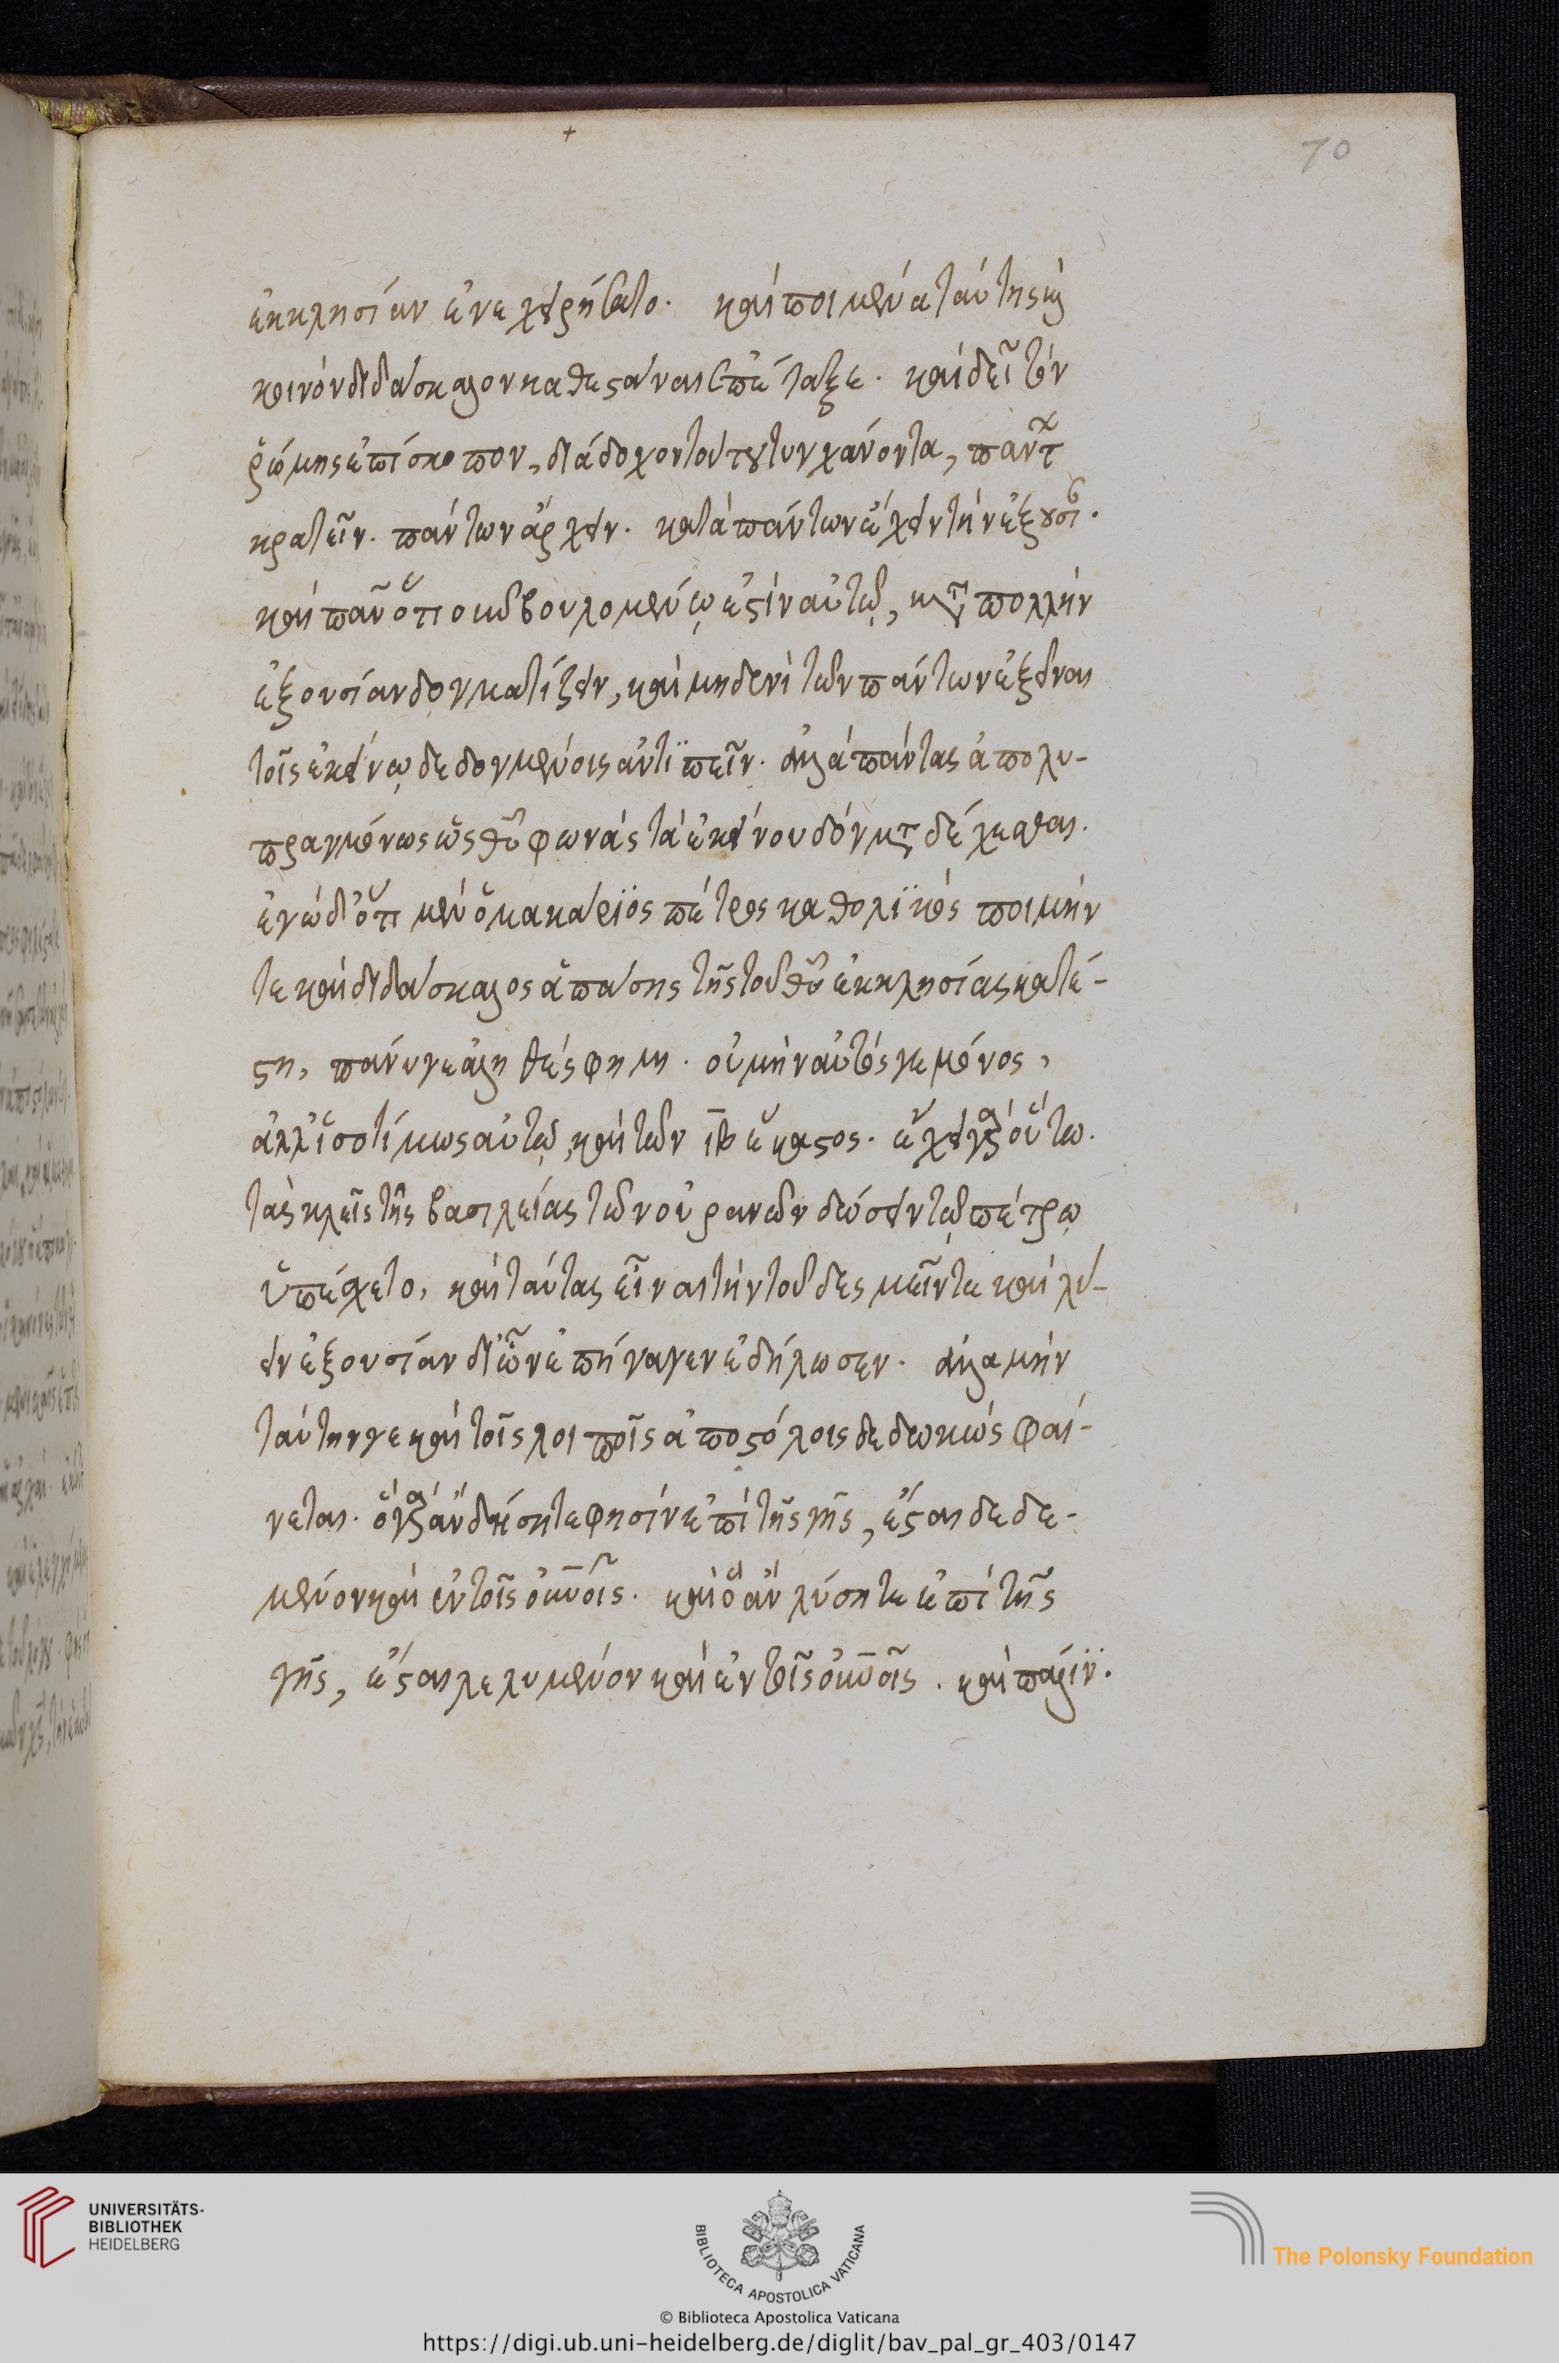 70
ἐκκλησίαν ἐνεχειρήσατο. καὶ ποιμένα ταύτης καὶ
κοινὸν διδάσκαλον καθεστάναι ἐπέταξε. καὶ δεῖ τὸν
ῥώμης ἐπίσκοπον, διάδοχον τούτου τυγχάνοντα, πάντων
κρατεῖν. πάντων ἄρχειν. κατὰ πάντων ἔχειν τὴν ἐξουσίαν.
καὶ πᾶν ὅτιοῦν βουλομένῳ ἐστὶν αὐτῷ, κατὰ πολλὴν
ἐξουσίαν δογματίζειν, καὶ μηδενὶ τῶν πάντων ἐξεῖναι
τοῖς ἐκείνῳ δεδογμένοις ἀντϊπεῖν. ἀλλὰ πάντας ἀπολυ-
πραγμόνως ὡς θυ φωνὰς τὰ ἐκείνου δόγματα δέχεσθαι.
ἐγὼ δ' ὅτι μὲν ὁ μακάριος πέτρος καθολϊκὸς ποιμήν
τε καὶ διδάσκαλος ἁπάσης τῆς τοῦ θυ ἐκκλησίας κατέ-
στη, πάνυγε ἀληθές φημι. οὐ μὴν αὐτός γε μόνος,
ἀλλ' ἰσοτίμως αὐτῷ, καὶ τῶν ιβ ἕκαστος. ἔχει γὰρ οὕτω.
τὰς κλεῖς τῆς βασιλείας τῶν οὐρανῶν δώσειν τῷ πέτρῳ
ὑπέσχετο, καὶ ταύτας εἶναι τὴν τοῦ δεσμεῖν τε καὶ λύ-
ειν ἐξουσίαν δι' ὧν ἐπήγαγεν ἐδήλωσεν. ἀλλα μὴν
ταύτην γε καὶ τοῖς λοιποῖς ἀποστόλοις δεδωκὼς φαί-
νεται. ὃ γὰρ ἂν δήσητε φησὶν ἐπὶ τῆς γῆς, ἔσται δεδε-
μένον καὶ ἐν τοῖς οὐνοῖς. καὶ ὃ ἂν λύσητε ἐπὶ τῆς
γῆς, ἔσται λελυμένον καὶ ἐν τοῖς οὐνοῖς. καὶ πάλϊν.
UNIVERSITÄTS-
BIBLIOTHEK
HEIDELBERG
BIBLIOTECA APOSTOLICA VATICANA
The Polonsky Foundation
© Biblioteca Apostolica Vaticana
https://digi.ub.uni-heidelberg.de/diglit/bav_pal_gr_403/0147